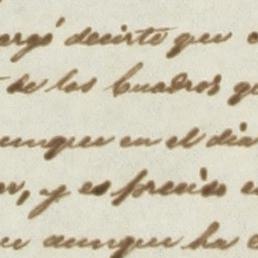 argó decirte que
de los Cuadros
aunque en el dia
y es preciso
aunque ha